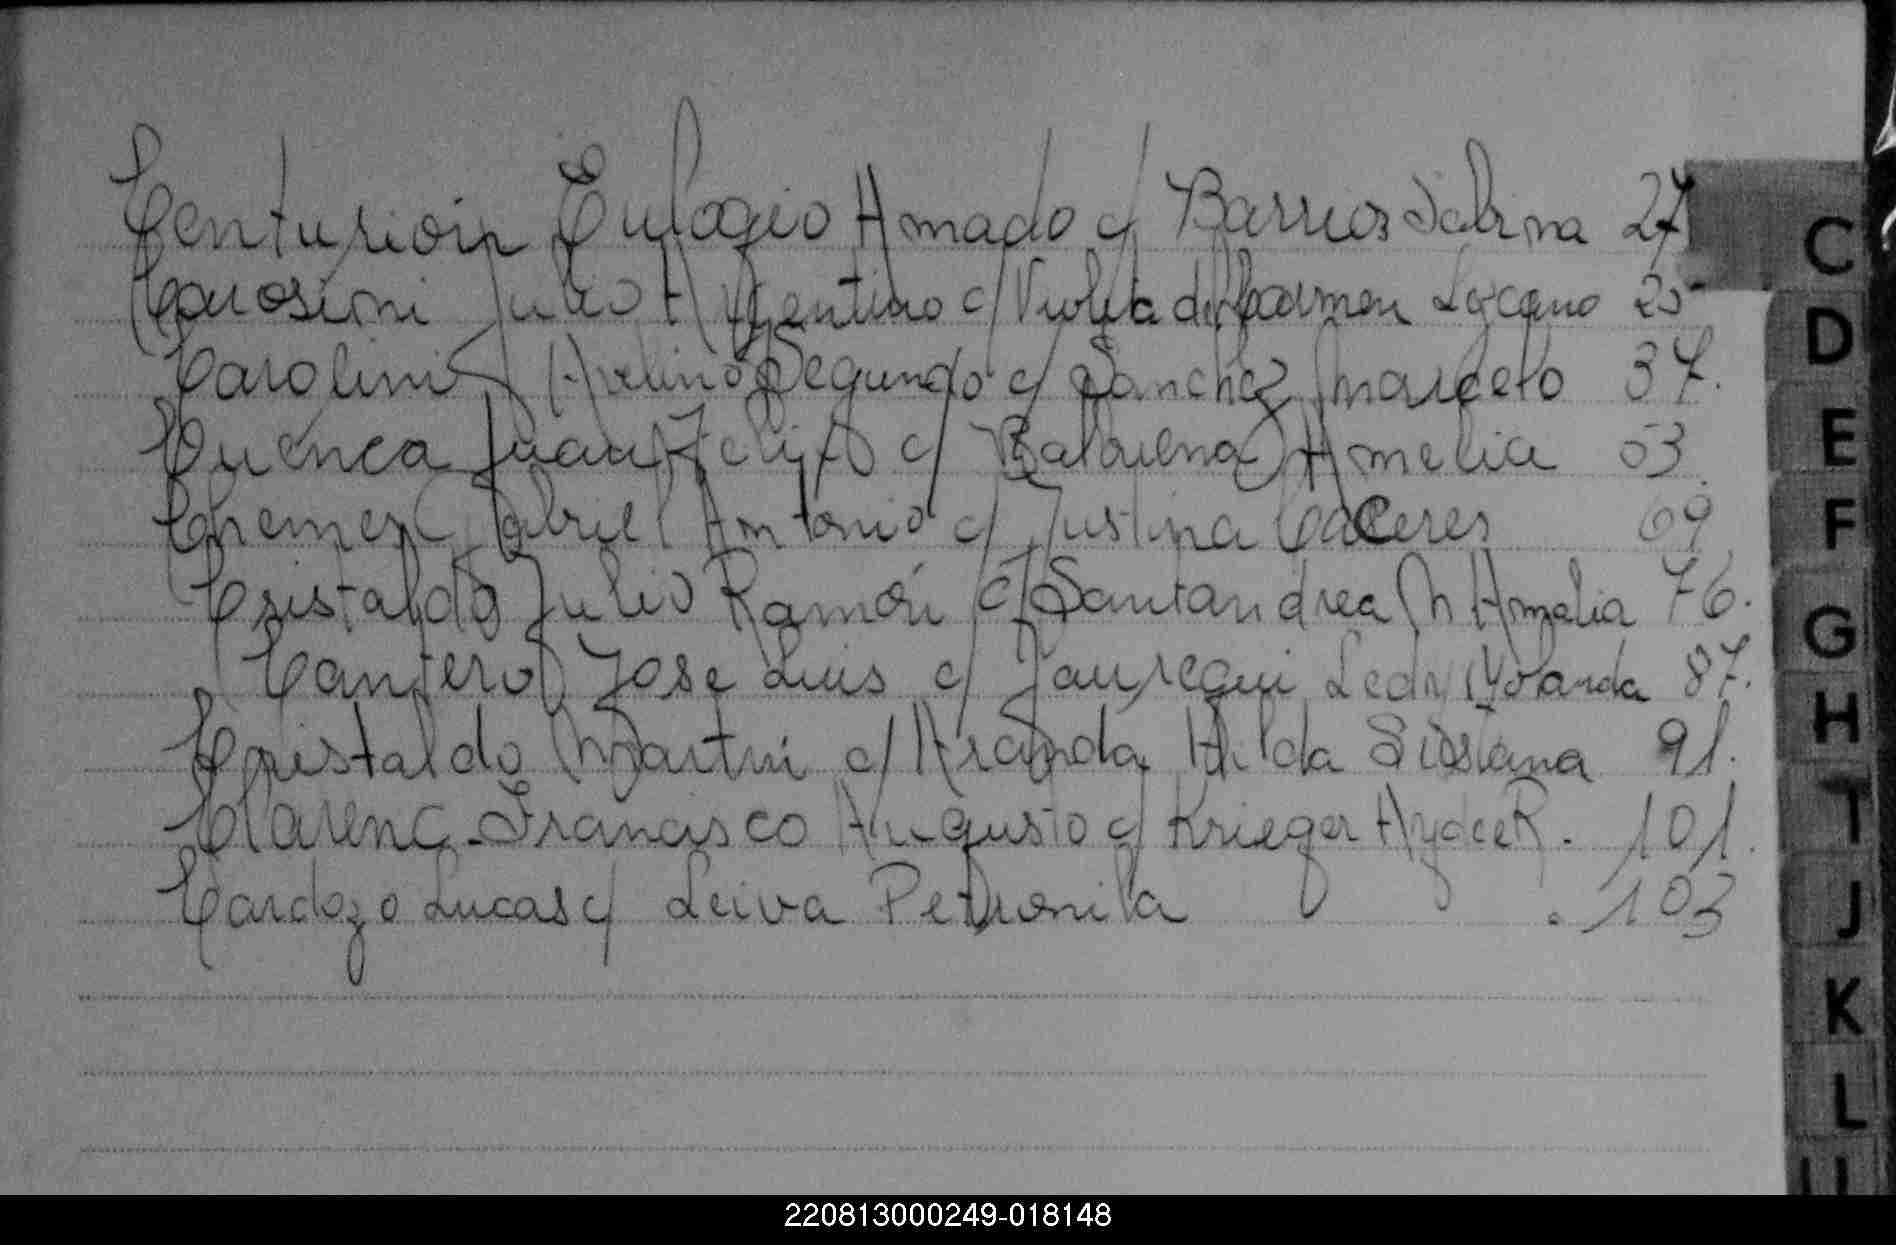 Centurión Eulogio Amado c/ Barrios Sabina 27
Carosini Julio Argentino c/ Violeta del Carmen Lozcano 25
Carolini Avelino Segundo c/ Sanchez Marcela 37.
Cuenca Juan Felix c/ Balbuena Amelia 53
Chemes Gabriel Antonio c/ Justina Caceres 69
Cristaldo Julio Ramón c/ Santandrea M Amalia 76.
Cantero Jose Luis c/ Jauregui Yolanda 87.
Cristaldo Martin c/ Aranda Hilda 91.
Clarenc Francisco Augusto c/ Krieger R. 101.
Cardozo Lucas c/ Leiva Petronila . 103
C
D
E
F
G
H
I
J
K
L
220813000249-018148